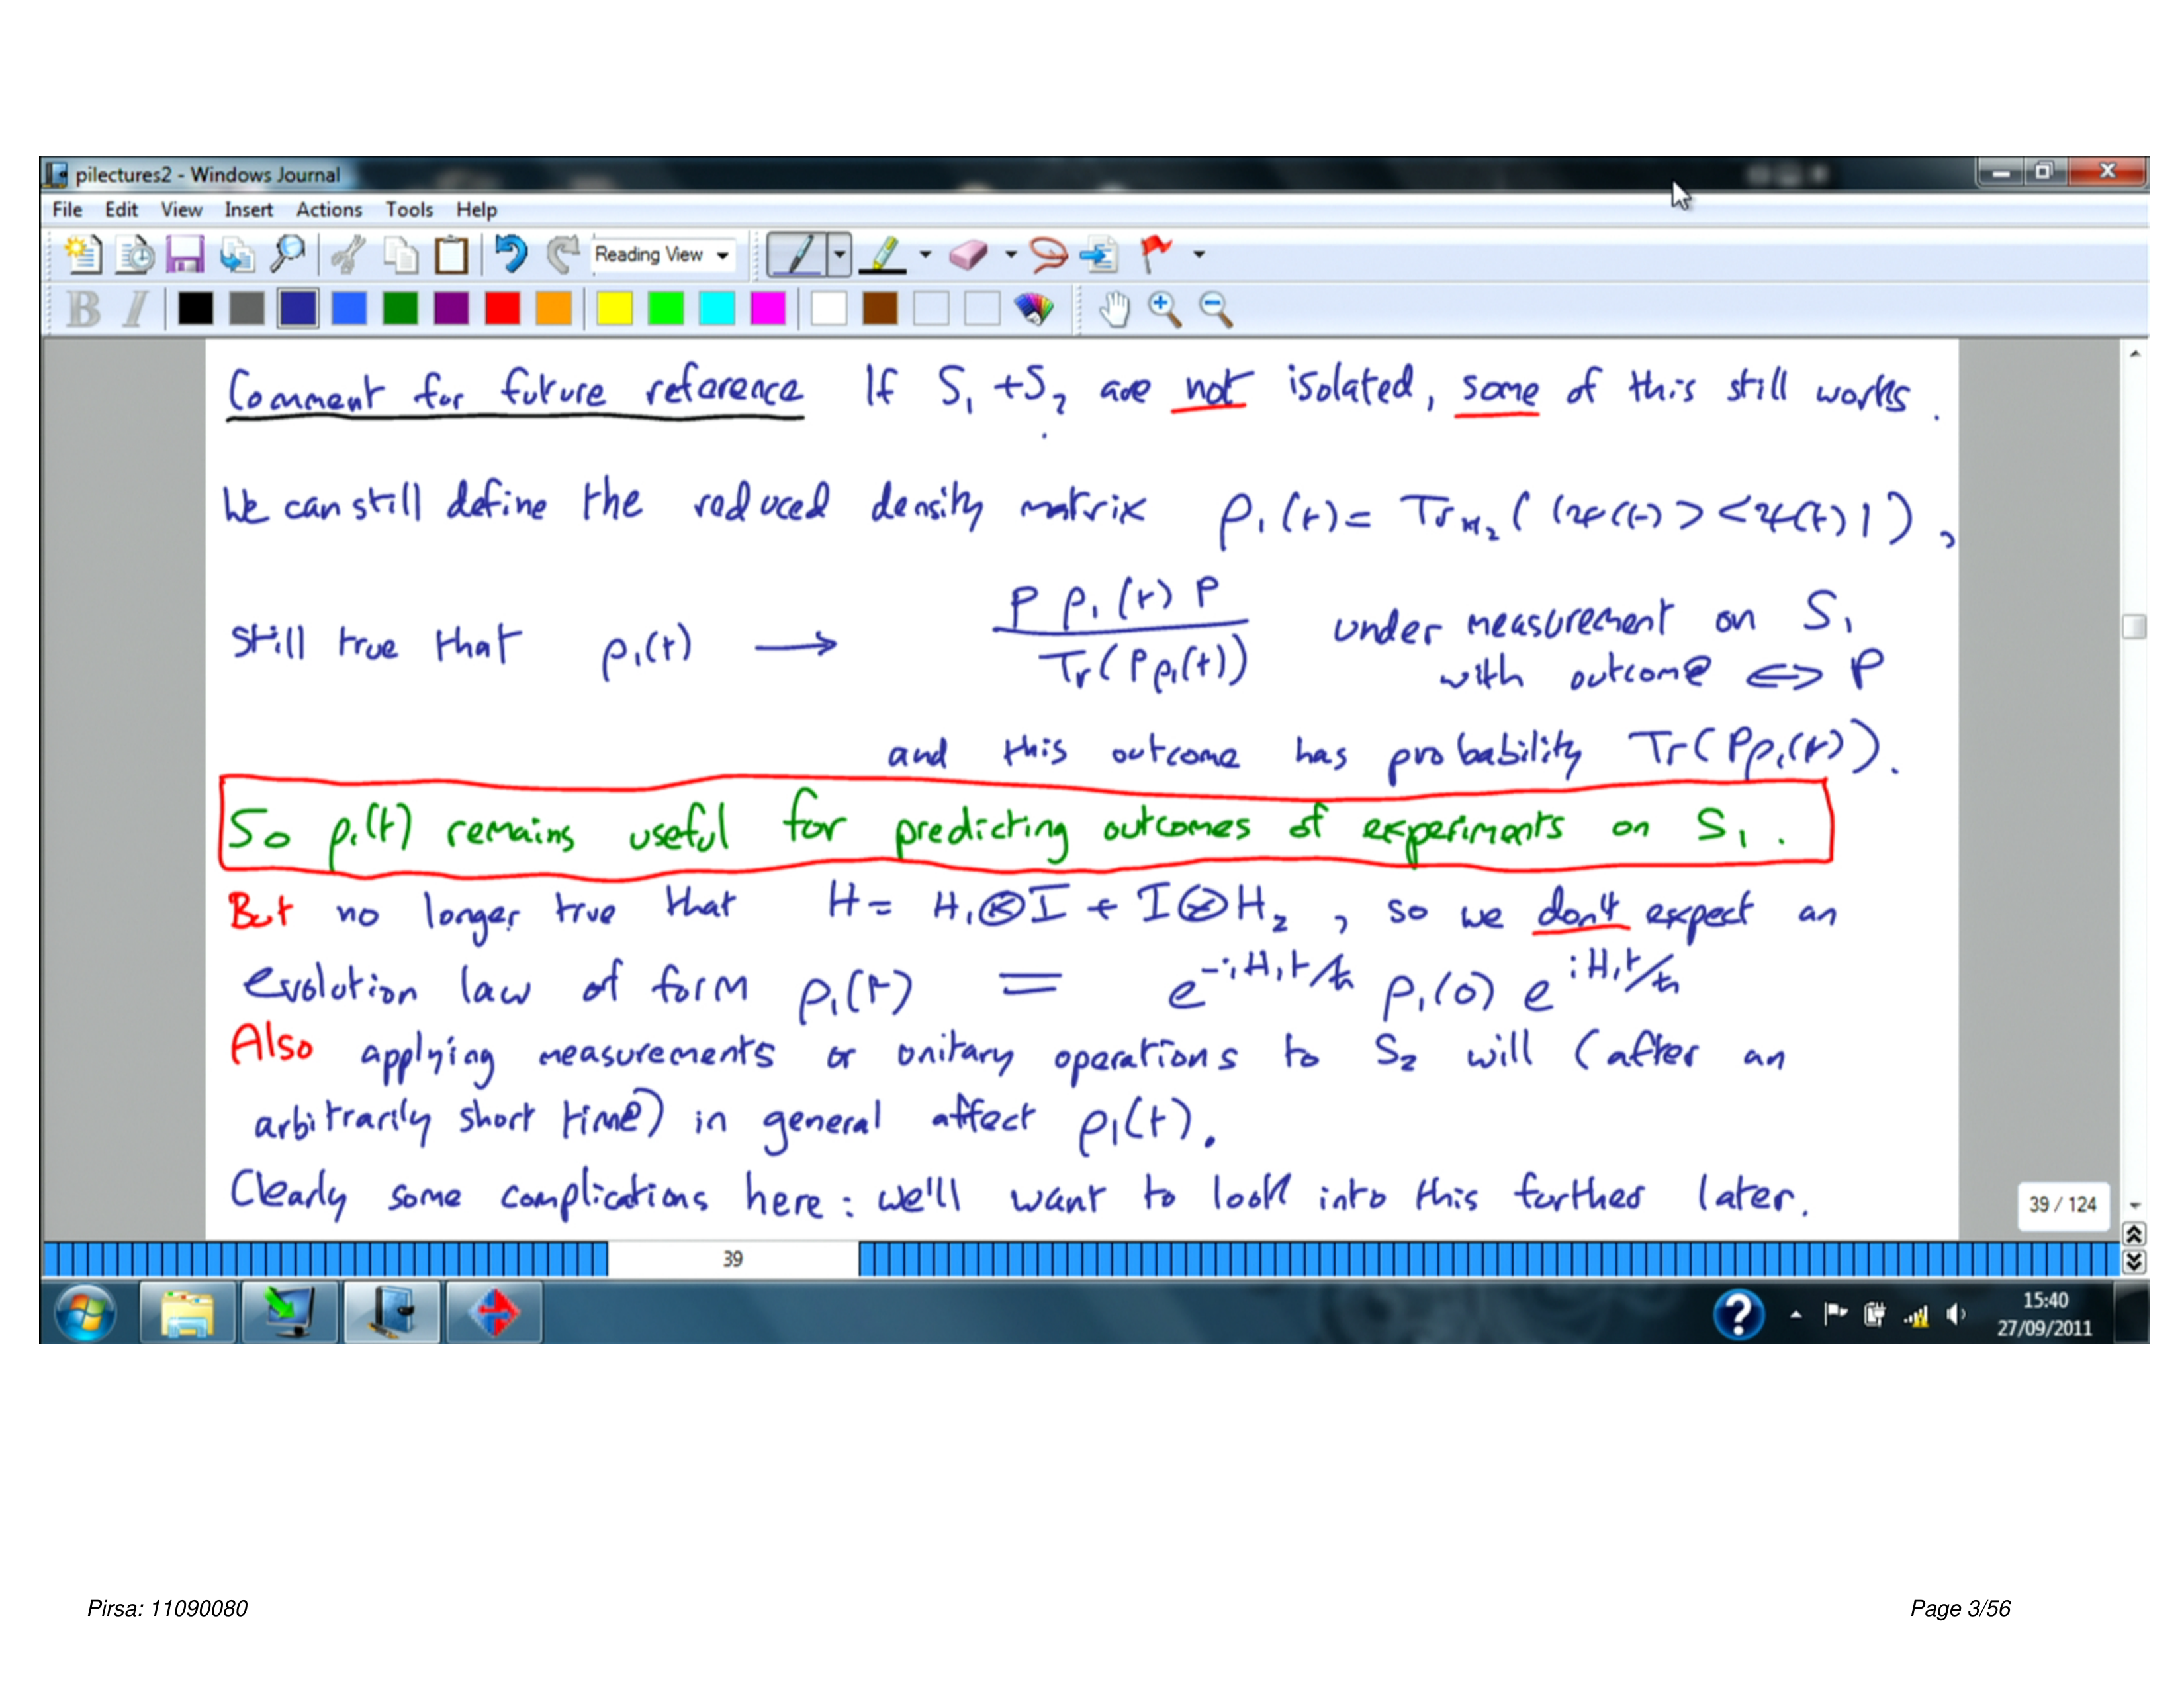 pilectures2 - Windows Journal
File Edit View Insert Actions Tools Help
Reading View
B I
Comment for future reference If S₁ + S₂ are not isolated, some of this still works.
We can still define the reduced density matrix ρ₁(t) = Tr_{H₂}(|ψ(t)><ψ(t)|),
Still true that ρ₁(t) → P ρ₁(t) P / Tr(P ρ₁(t)) under measurement on S₁
with outcome ⟺ P
and this outcome has probability Tr(Pρ₁(t)).
So ρ₁(t) remains useful for predicting outcomes of experiments on S₁.
But no longer true that H = H₁⊗I + I⊗H₂, so we don't expect an
evolution law of form ρ₁(t) = e^{-iH₁t/ħ} ρ₁(0) e^{iH₁t/ħ}
Also applying measurements or unitary operations to S₂ will (after an
arbitrarily short time) in general affect ρ₁(t).
Clearly some complications here: we'll want to look into this further later.
39 / 124
39
15:40
27/09/2011
Pirsa: 11090080
Page 3/56